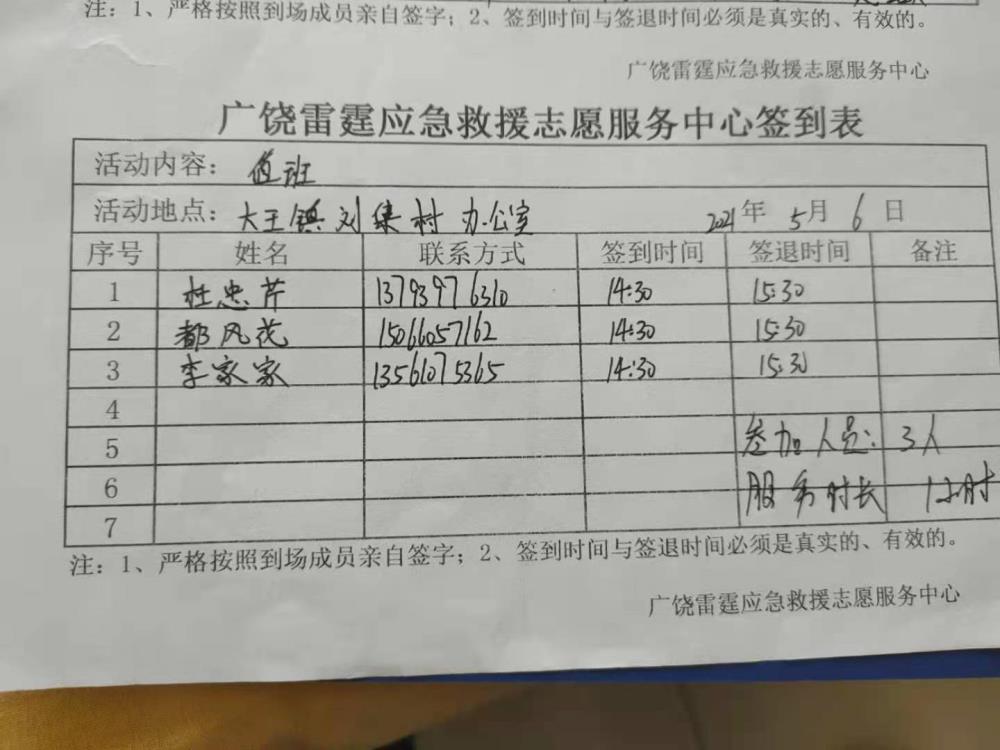 注：1、严格按照到场成员亲自签字；2、签到时间与签退时间必须是真实的、有效的。
广饶雷霆应急救援志愿服务中心
广饶雷霆应急救援志愿服务中心签到表
活动内容： 值班
活动地点：大王镇刘集村办公室 2021年 5月 6日
序号 姓名 联系方式 签到时间 签退时间 备注
1 杜忠芹 13793976310 14:30 15:30
2 都风花 15066057162 14:30 15:30
3 李家家 13561075365 14:30 15:30
4
5 参加人员：3人
6 服务时长 1小时
7
注：1、严格按照到场成员亲自签字；2、签到时间与签退时间必须是真实的、有效的。
广饶雷霆应急救援志愿服务中心